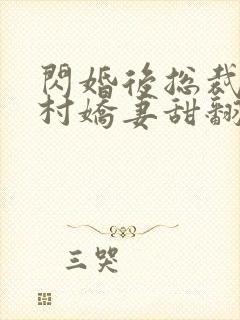 閃婚後总裁
村嬌妻甜翻
三哭